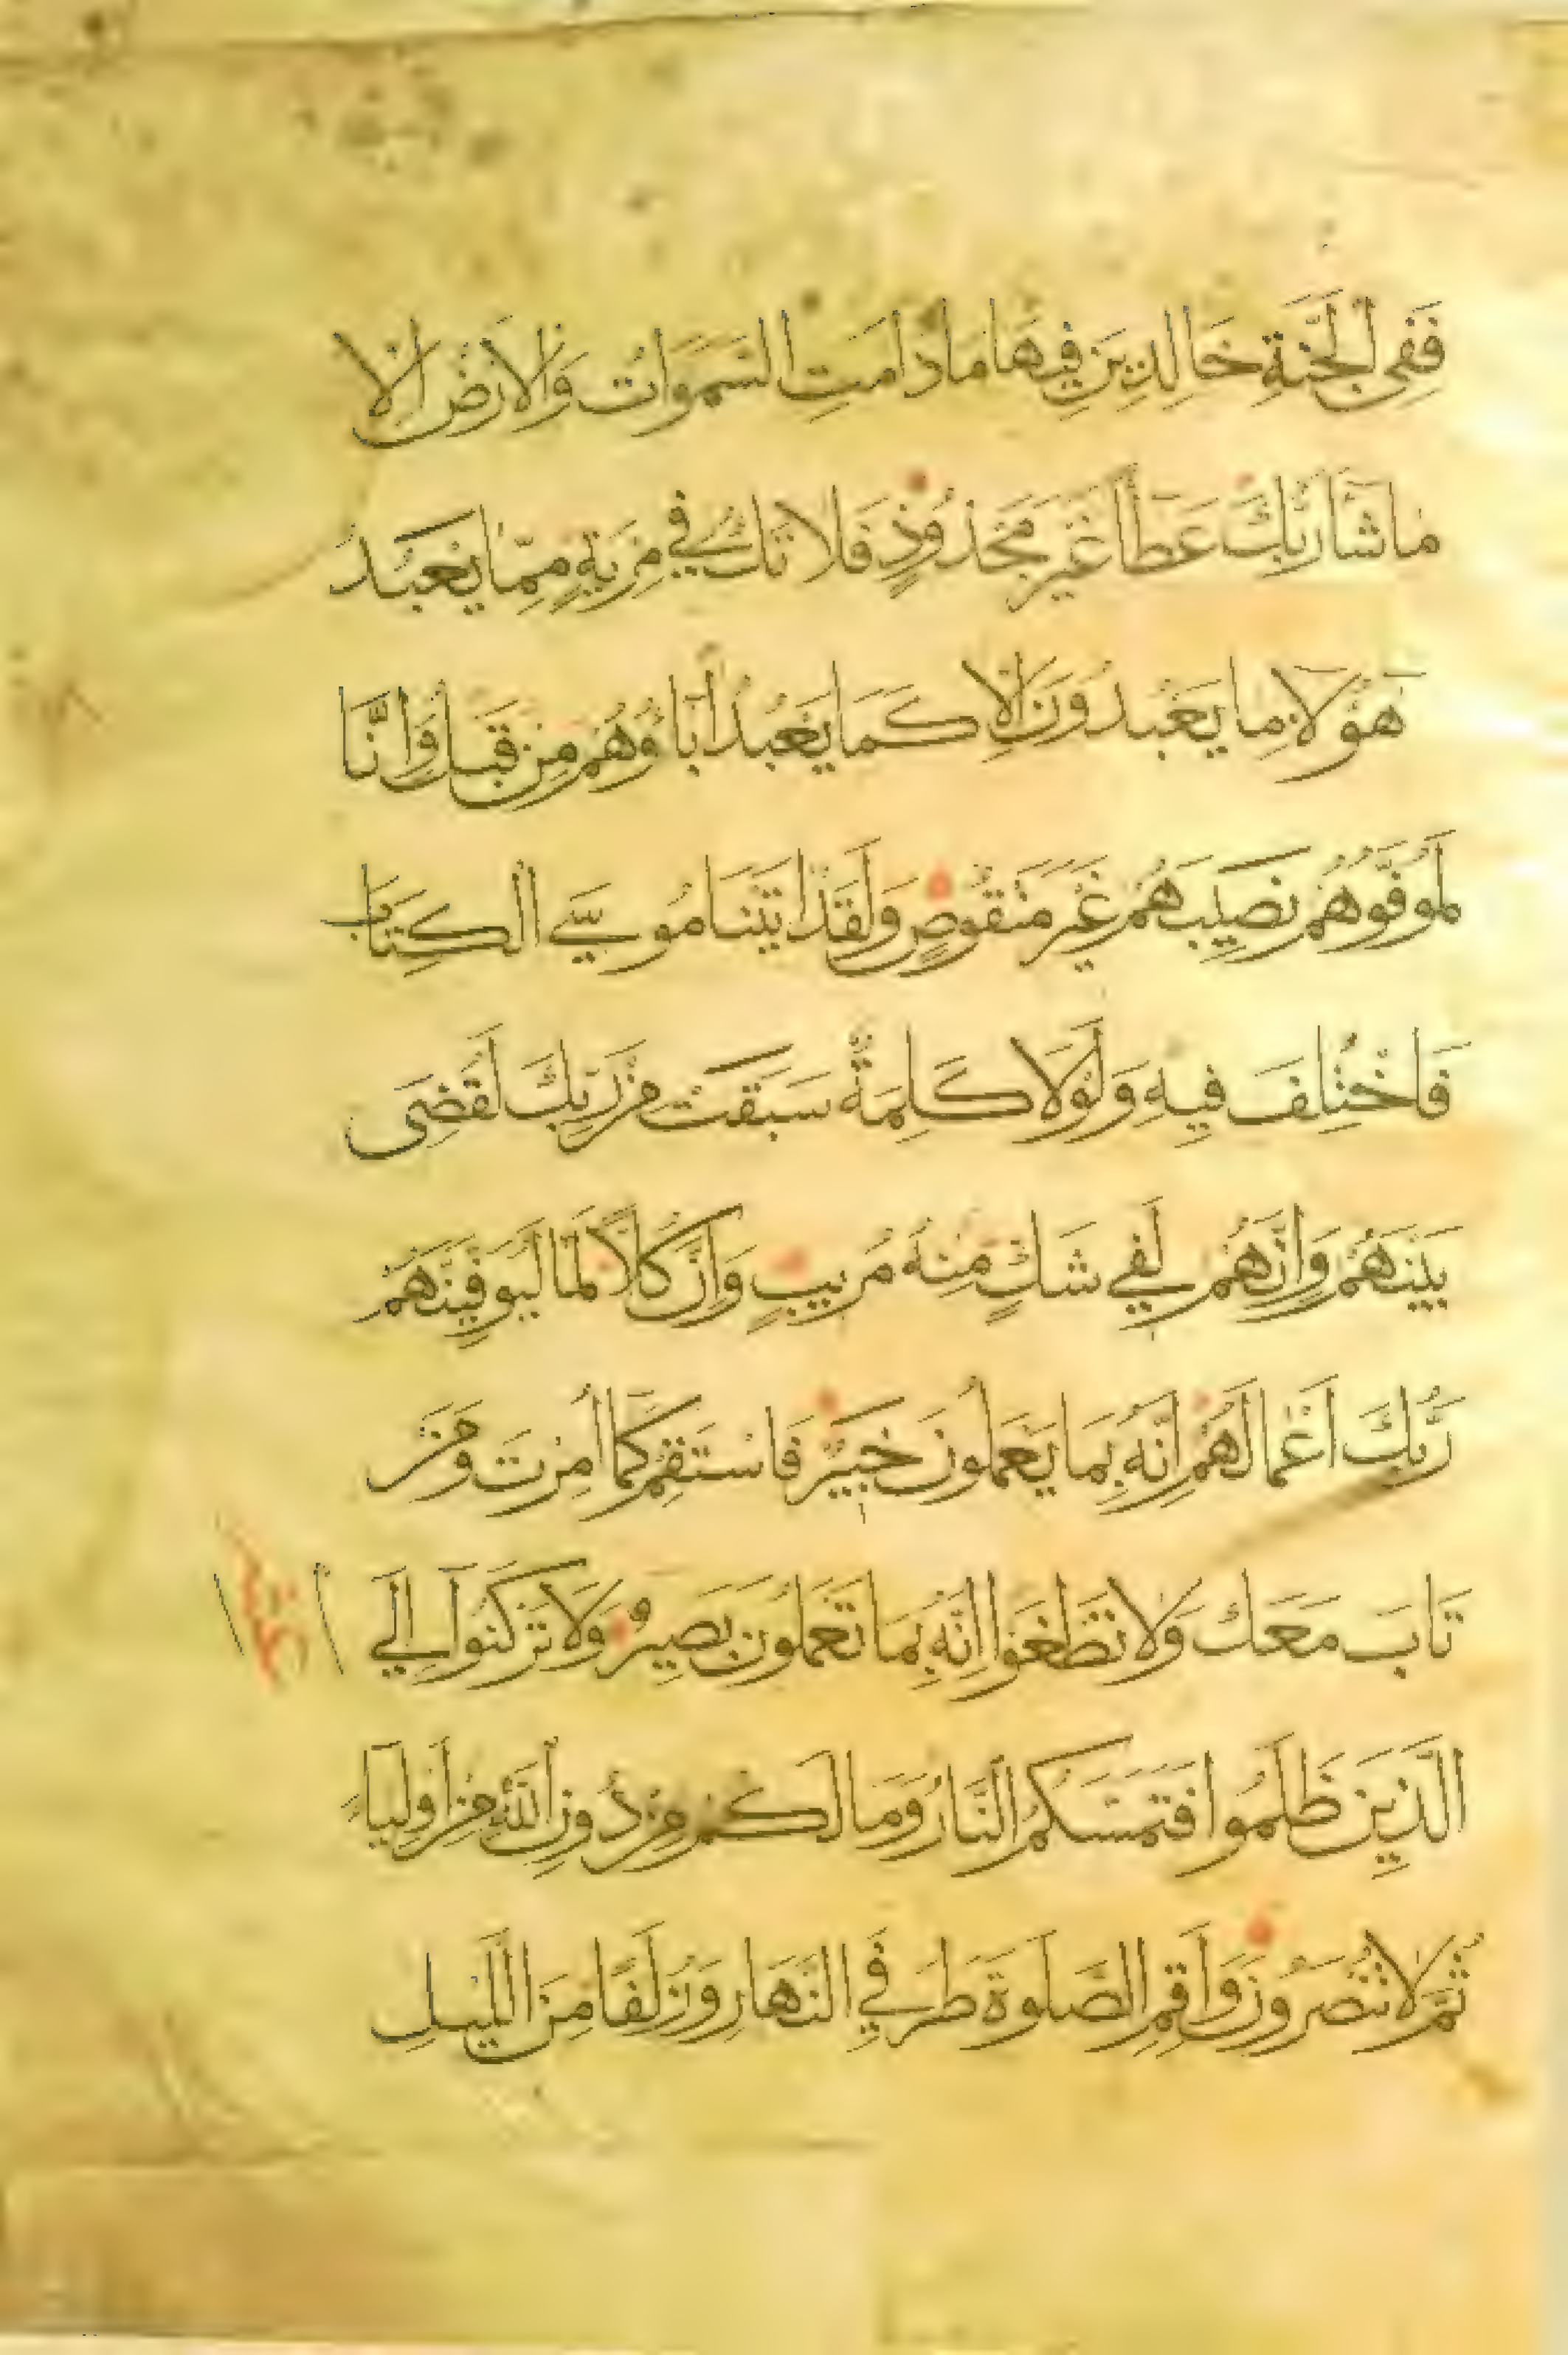 فَفِى الْجَنَّةِ خَالِدِينَ فِيهَا مَا دَامَتِ السَّمَوَاتُ وَالْاَرْضُ اِلَّا
مَا شَا رَبُّكَ عَطَاً غَيْرَ مَجْذُوذٍ فَلَا تَكُ فِي مِرْيَةٍ مِمَّا يَعْبُدُ
هَؤُلَاءِ مَا يَعْبُدُونَ اِلَّا كَمَا يَعْبُدُ اٰبَاؤُهُمْ مِنْ قَبْلُ وَاِنَّا
لَمُوَفُّوهُمْ نَصِيبَهُمْ غَيْرَ مَنْقُوصٍ وَلَقَدْ اٰتَيْنَا مُوسَي الْكِتَابَ
فَاخْتُلِفَ فِيهِ وَلَوْلَا كَلِمَةٌ سَبَقَتْ مِنْ رَبِّكَ لَقُضِىَ
بَيْنَهُمْ وَاِنَّهُمْ لَفِي شَكٍّ مِنْهُ مُرِيبٍ وَاِنَّ كُلًّا لَمَّا لَيُوَفِّيَنَّهُمْ
رَبُّكَ اَعْمَالَهُمْ اِنَّهُ بِمَا يَعْمَلُونَ خَبِيرٌ فَاسْتَقِمْ كَمَا اُمِرْتَ وَمَنْ
تَابَ مَعَكَ وَلَا تَطْغَوْا اِنَّهُ بِمَا تَعْمَلُونَ بَصِيرٌ وَلَا تَرْكَنُوا اِلَي
الَّذِينَ ظَلَمُوا فَتَمَسَّكُمُ النَّارُ وَمَا لَكُمْ مِنْ دُونِ اللّٰهِ مِنْ اَوْلِيَاءَ
ثُمَّ لَا تُنْصَرُونَ وَاَقِمِ الصَّلَوةَ طَرَفَيِ النَّهَارِ وَزُلَفًا مِنَ اللَّيْلِ